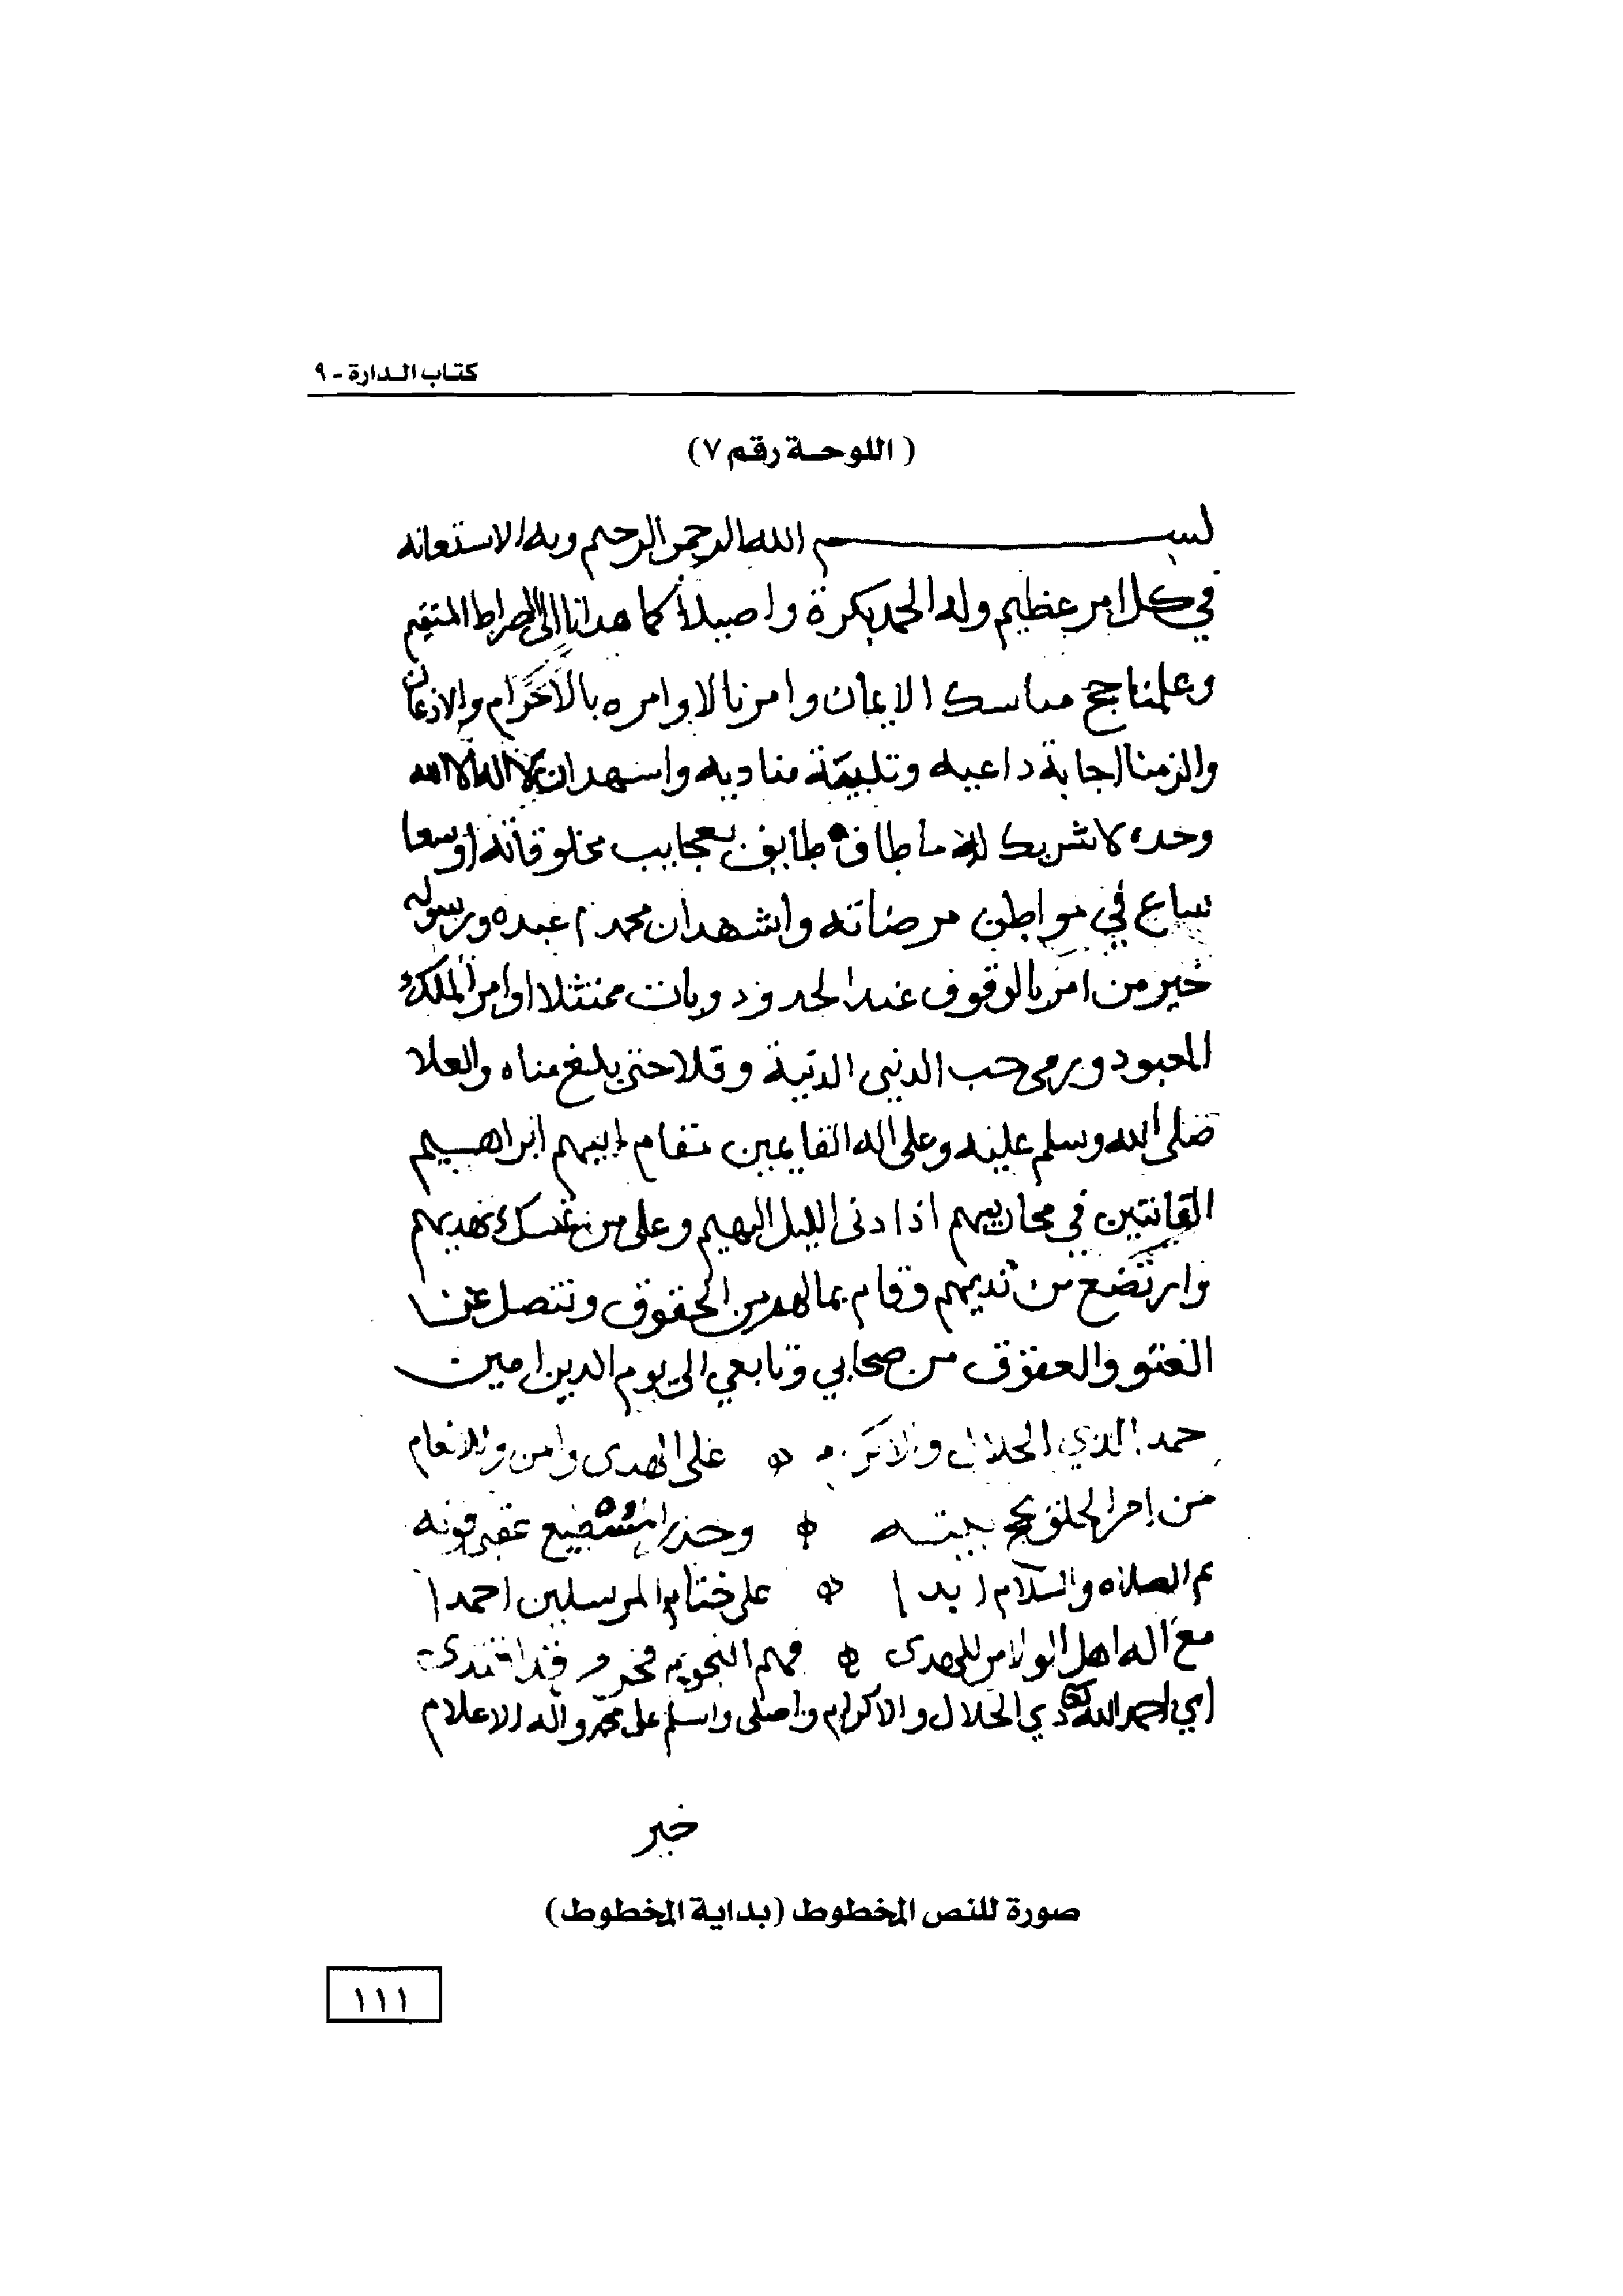 كتاب الدارة - ٩
( اللوحة رقم ٧)
بسم الله الرحمن الرحيم وبه الاستعانه
في كل امر عظيم وله الحمد بكرة واصيلا كما هدانا الى الصراط المستقيم
وعلمنا حج مناسك الايمان وامرنا لاوامره بالاحرام والاذعان
والزمنا اجابة داعيه وتلبية مناديه واشهد ان لا اله الا الله
وحده لا شريك له ما طاف طايف بعجايب مخلوقاته اوسعا
ساع في مواطن مرضاته واشهد ان محمدا عبده ورسوله
خير من امر بالوقوف عند الحدود وبات ممتثلا اوامر الملك
المعبود ورمى حب الدنى الدنية وقلا حتى بلغ مناه والعلا
صلى الله وسلم عليه وعلى اله القايمين مقام ابيهم ابراهيم
القانتين في محاريبهم اذا دنى الليل البهيم وعلى من تمسك بهديهم
وارتضع من ثديهم وقام بما لهم من الحقوق وتنصل عن
العتو والعقوق من صحابي وتابعي الى يوم الدين امين
حمدا لذي الجلال والاكرام ۞ على الهدى وامن والانعام
من امر الخلق بحج بيته ۞ وحذر
ثم الصلاه والسلام ابدا ۞ على ختام المرسلين احمدا
مع اله اهل الولا من للهدى ۞ فهم النجوم فقد اقتدى
اي احمد الله ذي الجلال والاكرام واصلى واسلم على محمد واله الاعلام
خبر
صورة للنص المخطوط (بداية المخطوط)
١١١